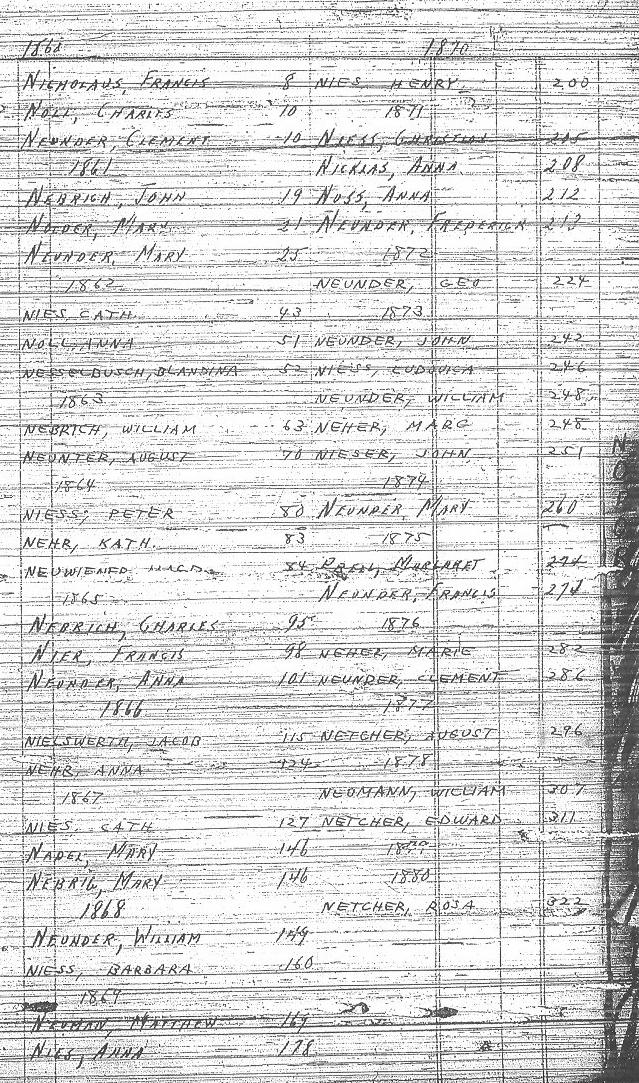 1860
NICHOLAUS, FRANCIS 8
NOLL, CHARLES 10
NEUNDER, CLEMENT 10
1861
NEBRICH, JOHN 19
NOLDER, MARY 21
NEUNDER, MARY 25
1862
NIES CATH. 43
NOLL, ANNA 51
NESSELBUSCH, BLANDINA 52
1863
NEBRICH, WILLIAM 63
NEUNTER, AUGUST 70
1864
NIESS, PETER 80
NEHR, KATH. 83
84
1865
NEBRICH, CHARLES 95
NIER, FRANCIS 98
NEUNDER, ANNA 101
1866
NIELSWERTH, JACOB 115
NEHR, ANNA 124
1867
NIES, CATH 127
NADEL, MARY 146
NEBRIG, MARY 146
1868
NEUNDER, WILLIAM 149
NIESS, BARBARA 160
1869
NEUMAN, MATTHEW 169
NIES, ANNA 178
1870
NIES HENRY 200
1871
NIESS, CHRISTIAN 205
NICKLAS, ANNA 208
NOSS, ANNA 212
NEUNDER, FREDERICK 213
1872
NEUNDER, GEO 224
1873
NEUNDER, JOHN 242
NIESS, LUDOVICA 246
NEUNDER, WILLIAM 248
NEHER, MARG 248
NIESER, JOHN 251
1874
NEUNDER, MARY 260
1875
MARGARET 274
NEUNDER, FRANCIS 274
1876
NEHER, MARIE 282
NEUNDER, CLEMENT 286
1877
NETCHER, AUGUST 296
1878
NEOMANN, WILLIAM 307
NETCHER, EDWARD 311
1879
1880
NETCHER, ROSA 322